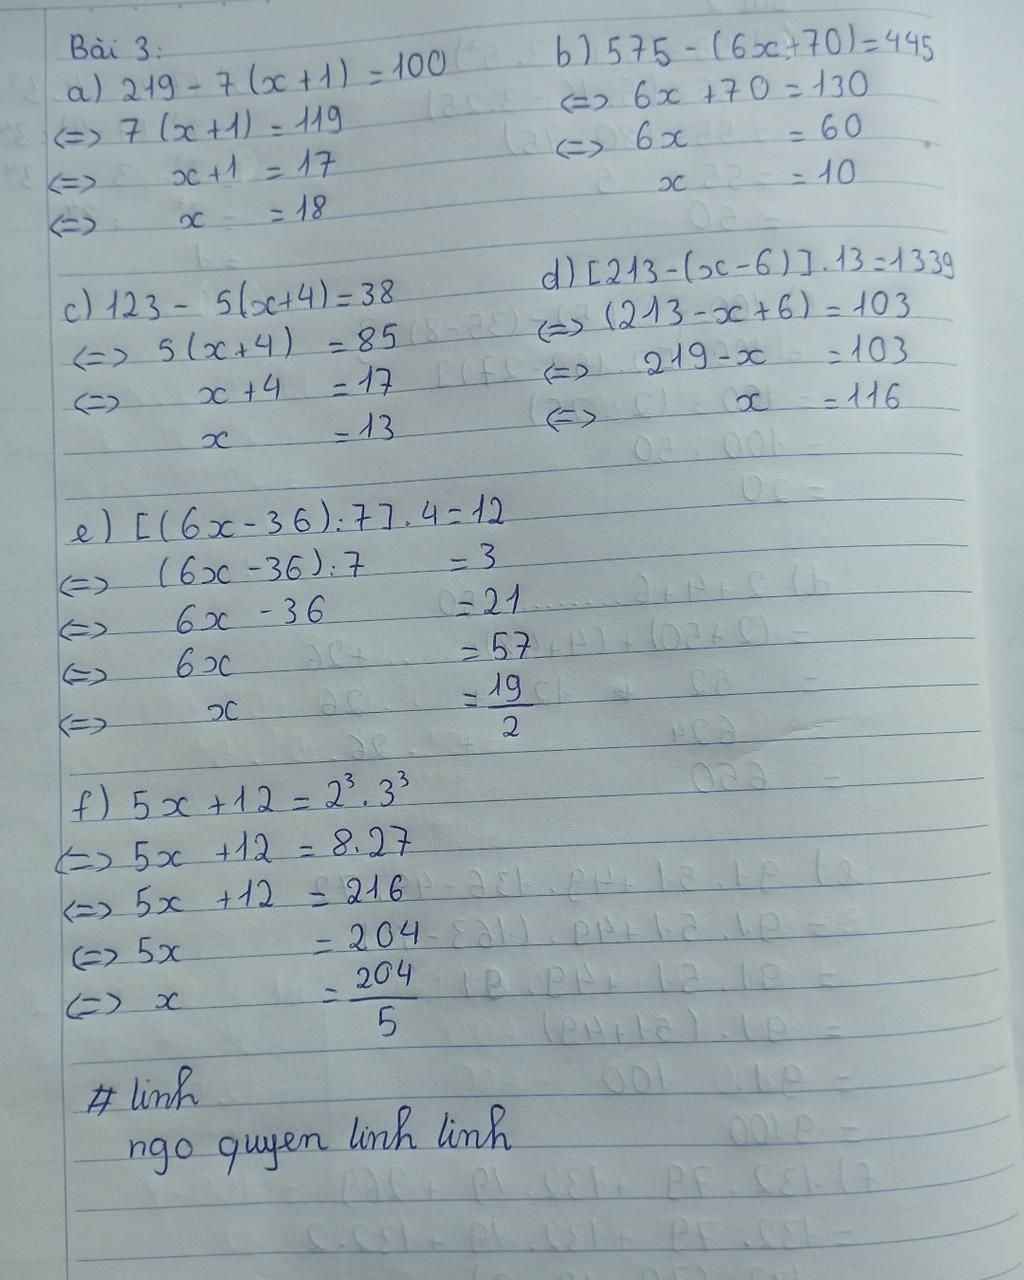 Bài 3:
a) 219 - 7(x+1) = 100
<=> 7(x+1) = 119
<=> x+1 = 17
<=> x = 18
b) 575 - (6x+70) = 445
<=> 6x + 70 = 130
<=> 6x = 60
x = 10
c) 123 - 5(x+4) = 38
<=> 5(x+4) = 85
<=> x+4 = 17
x = 13
d) [213-(x-6)].13 = 1339
<=> (213-x+6) = 103
<=> 219-x = 103
<=> x = 116
e) [(6x-36):7].4 = 12
<=> (6x-36):7 = 3
<=> 6x - 36 = 21
<=> 6x = 57
<=> x = 19/2
f) 5x + 12 = 2³.3³
<=> 5x + 12 = 8.27
<=> 5x + 12 = 216
<=> 5x = 204
<=> x = 204/5
# linh
ngo quyen linh linh